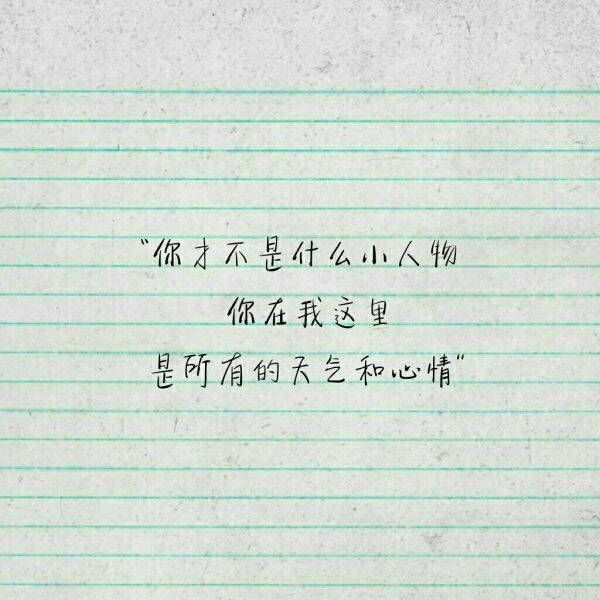 “你才不是什么小人物
你在我这里
是所有的天气和心情”